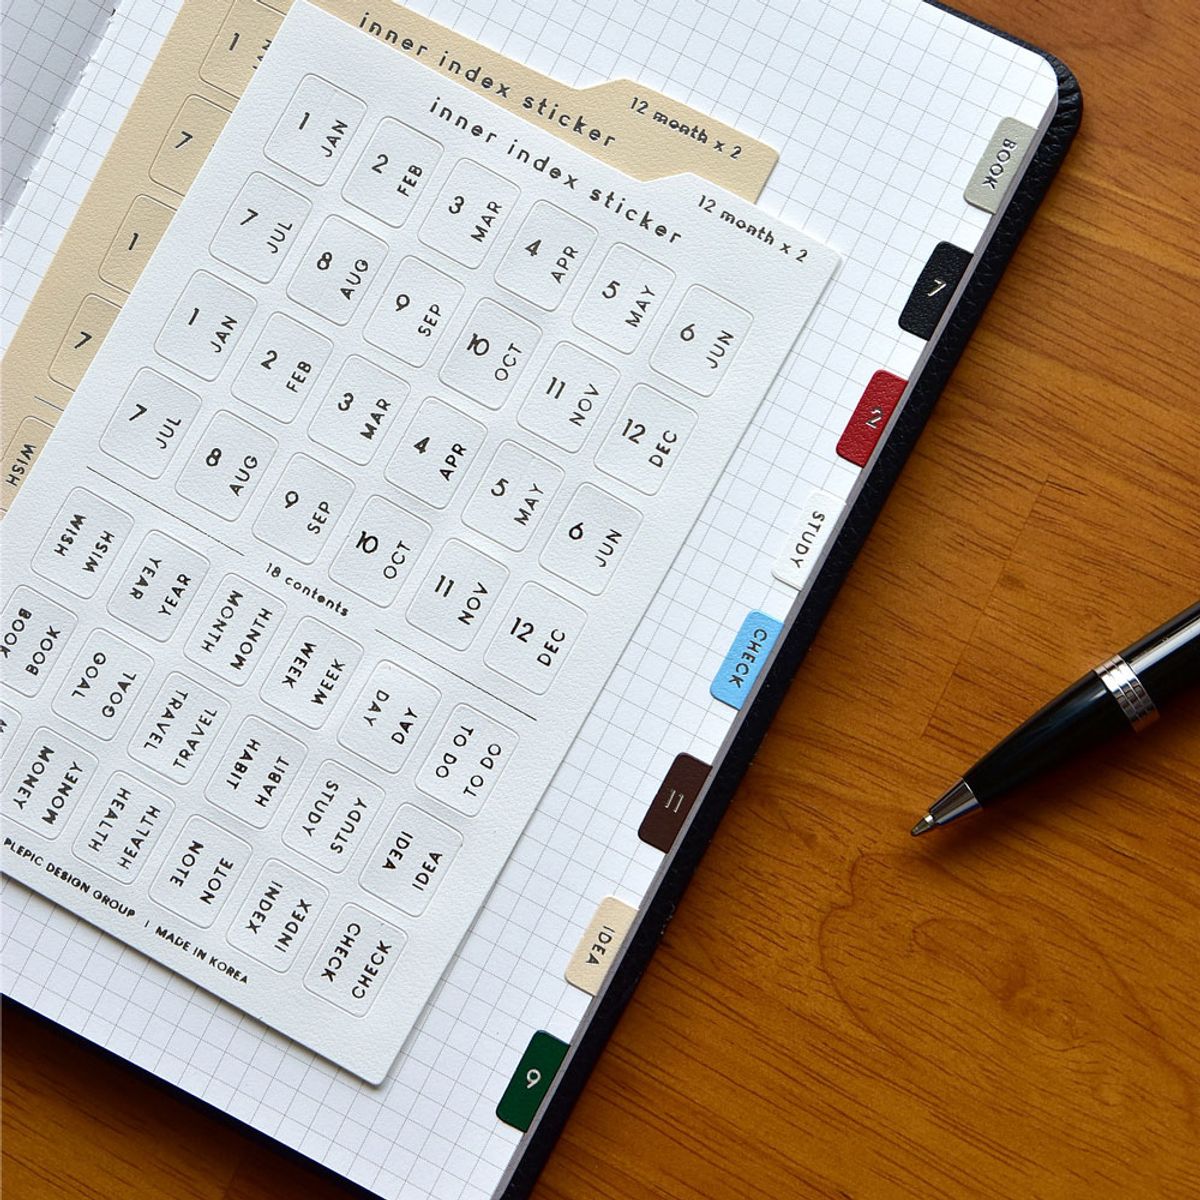 inner index sticker
12 month x 2
1
7
1
7
WISH
inner index sticker
12 month x 2
1 JAN
2 FEB
3 MAR
4 APR
5 MAY
6 JUN
7 JUL
8 AUG
9 SEP
10 OCT
11 NOV
12 DEC
1 JAN
2 FEB
3 MAR
4 APR
5 MAY
6 JUN
7 JUL
8 AUG
9 SEP
10 OCT
11 NOV
12 DEC
18 contents
WISH WISH
YEAR YEAR
MONTH MONTH
WEEK WEEK
DAY DAY
TO DO TO DO
BOOK BOOK
GOAL GOAL
TRAVEL TRAVEL
HABIT HABIT
STUDY STUDY
IDEA IDEA
MONEY MONEY
HEALTH HEALTH
NOTE NOTE
INDEX INDEX
CHECK CHECK
PLEPIC DESIGN GROUP | MADE IN KOREA
BOOK
7
2
STUDY
CHECK
11
IDEA
9